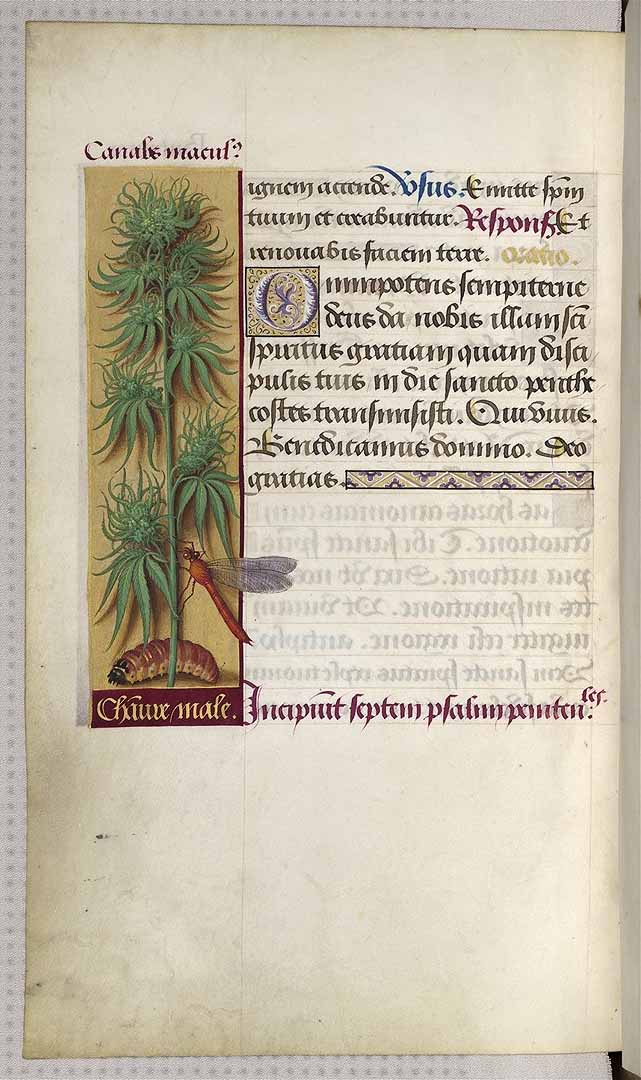 Canabs mascul9
ignem accende. Vsus. Emitte spm
tuum et creabuntur. Respons. Et
renouabis faciem terre. oratio.
Omnipotens sempiterne
deus da nobis illum sci
spiritus gratiam quam disci
pulis tuis in die sancto penthe
costes transmisisti. Qui viuis.
Benedicamus domino. Deo
gratias.
Chãuve male. Incipiũt septem psalmi peniten.les.